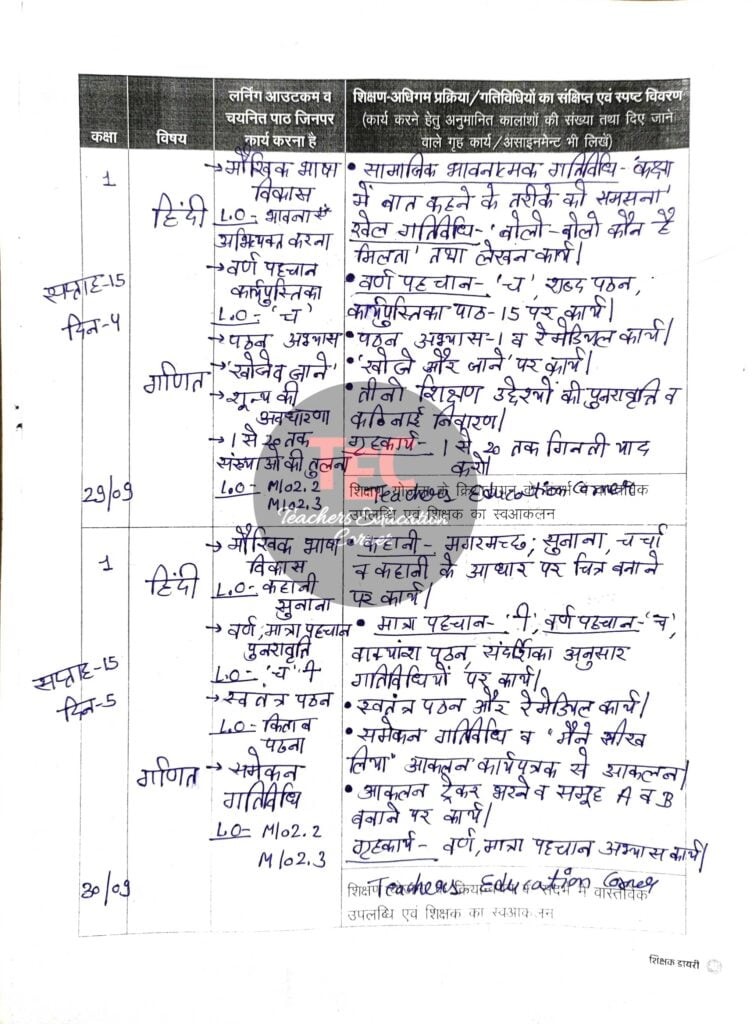 कक्षा
विषय
लर्निंग आउटकम व
चयनित पाठ जिनपर
कार्य करना है
शिक्षण-अधिगम प्रक्रिया/गतिविधियों का संक्षिप्त एवं स्पष्ट विवरण
(कार्य करने हेतु अनुमानित कालांशों की संख्या तथा दिए जाने
वाले गृह कार्य/असाइनमेंट भी लिखें)
1
हिंदी
सप्ताह-15
दिन-4
गणित
29/09
→ मौखिक भाषा
विकास
L.O- भावना
अभिव्यक्त करना
→ वर्ण पहचान
कार्यपुस्तिका
L.O- 'च'
→ पठन अभ्यास
→ 'खोजें व जाने'
→ शून्य की
अवधारणा
→ 1 से 20 तक
संख्याओं की तुलना
L.O- M102.2
M102.3
• सामाजिक भावनात्मक गतिविधि- 'कक्षा
में बात कहने के तरीके को समझना'
खेल गतिविधि- 'बोलो-बोलो कौन है
मिलता' तथा लेखन कार्य।
• वर्ण पहचान- 'च', शब्द पठन,
कार्यपुस्तिका पाठ-15 पर कार्य।
• पठन अभ्यास-1 व रेमेडियल कार्य।
• 'खोजे और जाने' पर कार्य।
• तीनो शिक्षण उद्देश्यों की पुनरावृत्ति व
कठिनाई निवारण।
गृहकार्य- 1 से 20 तक गिनती याद
करो।
TEC
Teachers Education
Corner
Teachers Education Corner
उपलब्धि एवं शिक्षक का स्वआकलन
1
हिंदी
सप्ताह-15
दिन-5
गणित
30/09
→ मौखिक भाषा
विकास
L.O- कहानी
सुनाना
→ वर्ण, मात्रा पहचान
पुनरावृति
L.O- 'च' 'ी
→ स्वतंत्र पठन
L.O- किताब
पठना
→ समेकन
गतिविधि
L.O- M102.2
M102.3
• कहानी- मगरमच्छ; सुनाना, चर्चा
व कहानी के आधार पर चित्र बनाने
पर कार्य।
• मात्रा पहचान- 'ी', वर्ण पहचान- 'च',
वाक्यांश पठन, संदर्शिका अनुसार
गतिविधियों पर कार्य।
• स्वतंत्र पठन और रेमेडियल कार्य।
• समेकन गतिविधि व 'मैंने सीख
लिया' आकलन कार्यपत्रक से आकलन।
• आकलन ट्रेकर भरने व समूह A व B
बनाने पर कार्य।
गृहकार्य- वर्ण, मात्रा पहचान अभ्यास कार्य।
Teachers Education Corner
उपलब्धि एवं शिक्षक का स्वआकलन
शिक्षक डायरी